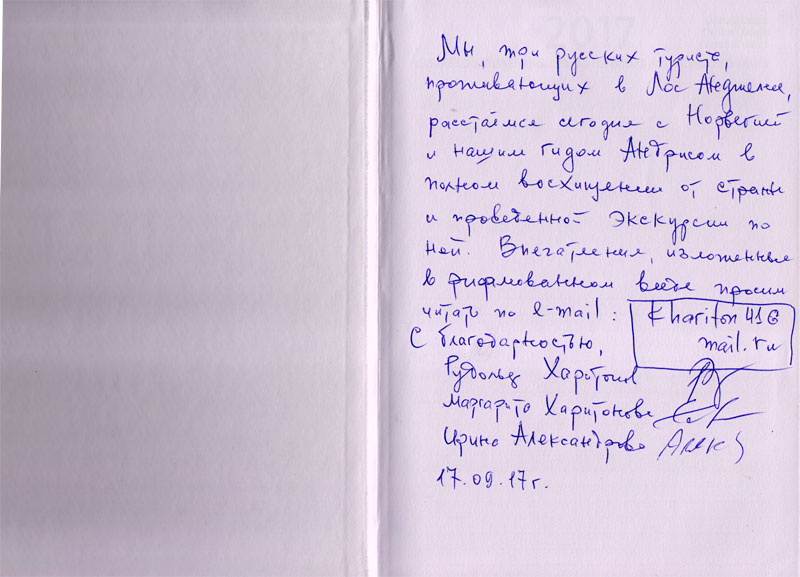 Мы, три русских туриста,
проживающих в Лос Анджелесе,
расстаёмся сегодня с Норвегией
и нашим гидом Андрисом в
полном восхищении от страны
и проведенной экскурсии по
ней. Впечатления, изложенные
в рифмованном виде просим
читать по e-mail: khariton41@
mail.ru
С благодарностью,
Рудольф Харитонов
Маргарита Харитонова
Ирина Александрова
17.09.17г.